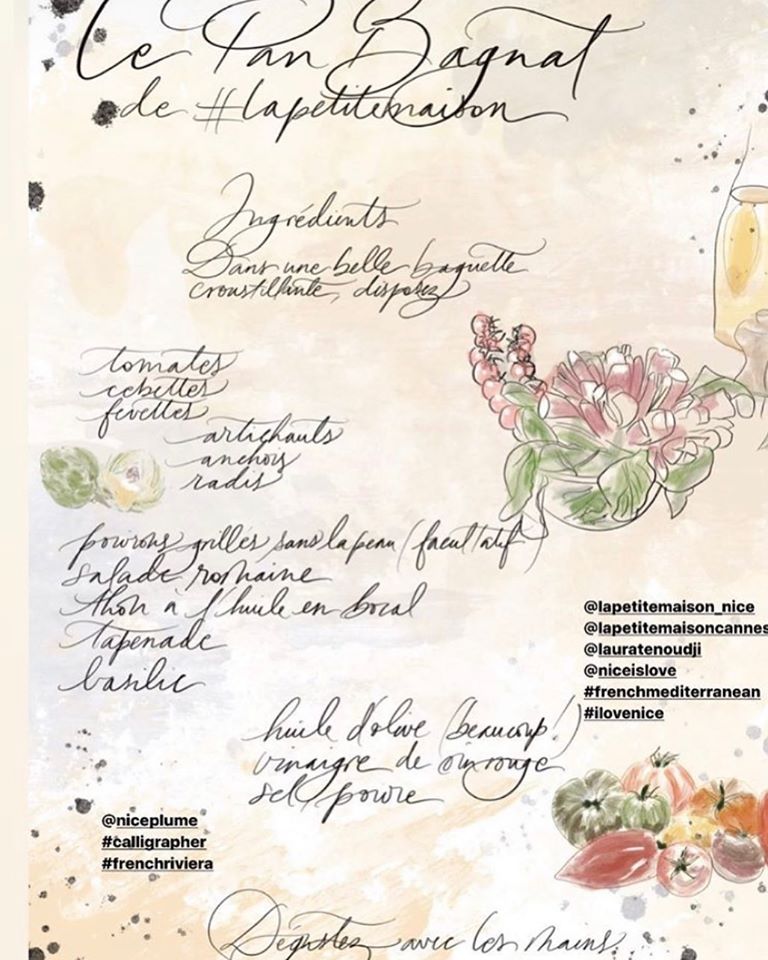 Le Pan Bagnat
de #lapetitemaison
Ingrédients
Dans une belle baguette
croustillante, disposez
tomates
cebettes
fevettes
artichauts
anchois
radis
poivrons grillés sans la peau (facultatif)
salade romaine
thon à l'huile en bocal
tapenade
basilic
@lapetitemaison_nice
@lapetitemaisoncannes
@lauratenoudji
@niceislove
#frenchmediterranean
#ilovenice
huile d'olive (beaucoup!)
vinaigre de vin rouge
sel, poivre
@niceplume
#calligrapher
#frenchriviera
Dégustez avec les mains.